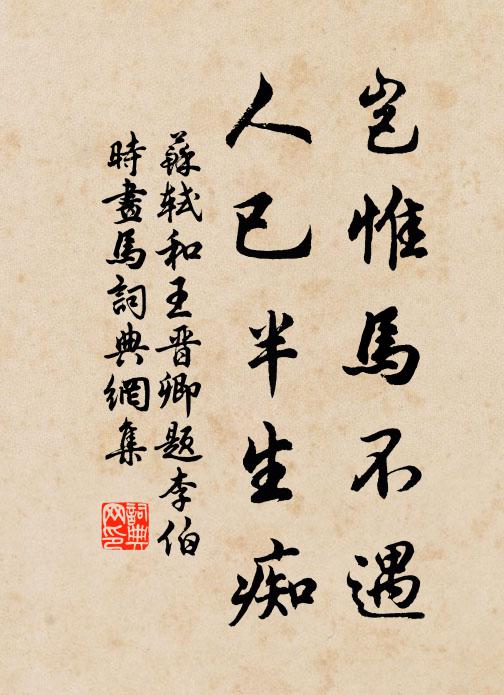 岂惟馬不遇
人已半生痴
蘇軾和王晋卿题李伯
時畫馬詞典網集
詞典
网印